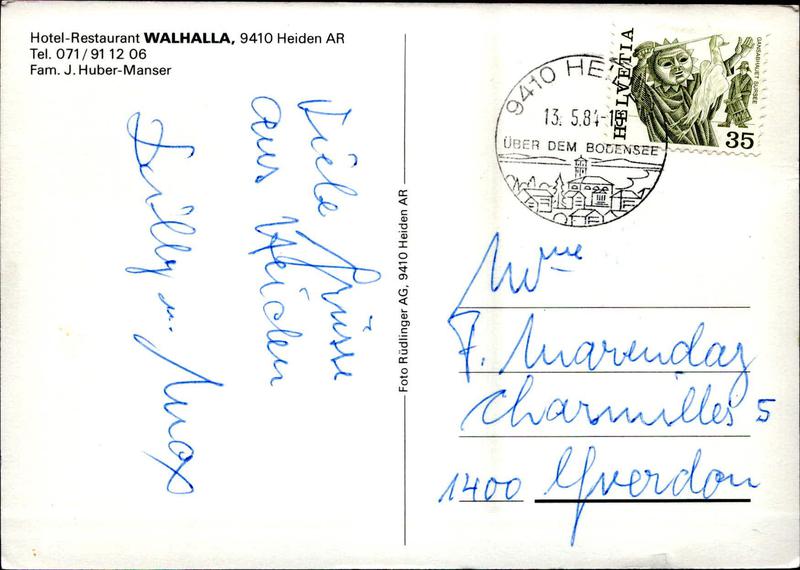 Hotel-Restaurant WALHALLA, 9410 Heiden AR
Tel. 071/91 12 06
Fam. J. Huber-Manser
Viele Grüsse
aus Heiden
Willy u. Max
Foto Rüdlinger AG, 9410 Heiden AR
9410 HEI
13. 5.84-1
ÜBER DEM BODENSEE
HELVETIA
GANSABHAUET SURSEE
35
Mme
F. Marendaz
Charmilles 5
1400 Yverdon